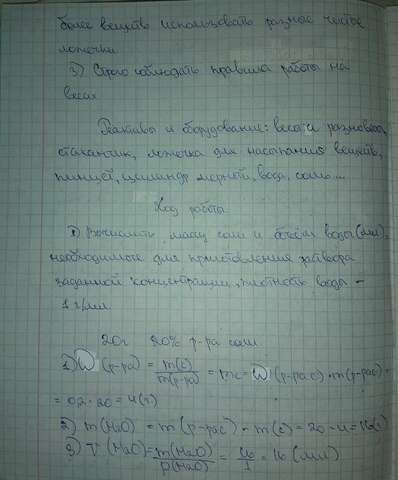 более веществ использовать разные чистые
ложечки
3) Строго соблюдать правила работы на
весах
Реактивы и оборудование: весы и разновесы,
стаканчик, ложечка для насыпания веществ,
пинцет, цилиндр мерный, вода, соль...
Ход работы
1) Вычислить массу соли и объём воды (мл),
необходимые для приготовления раствора
заданной концентрации, плотность воды -
1 г/мл.
20г 20% р-ра соли
1) W (р-ра) = m(c) / m(р-ра) = mc = W (р-рас) · m(р-рас) =
= 0,2 · 20 = 4(г)
2) m(H2O) = m(р-рас) - m(c) = 20 - 4 = 16(г)
3) V (H2O) = m(H2O) / p(H2O) = 16 / 1 = 16 (мл)